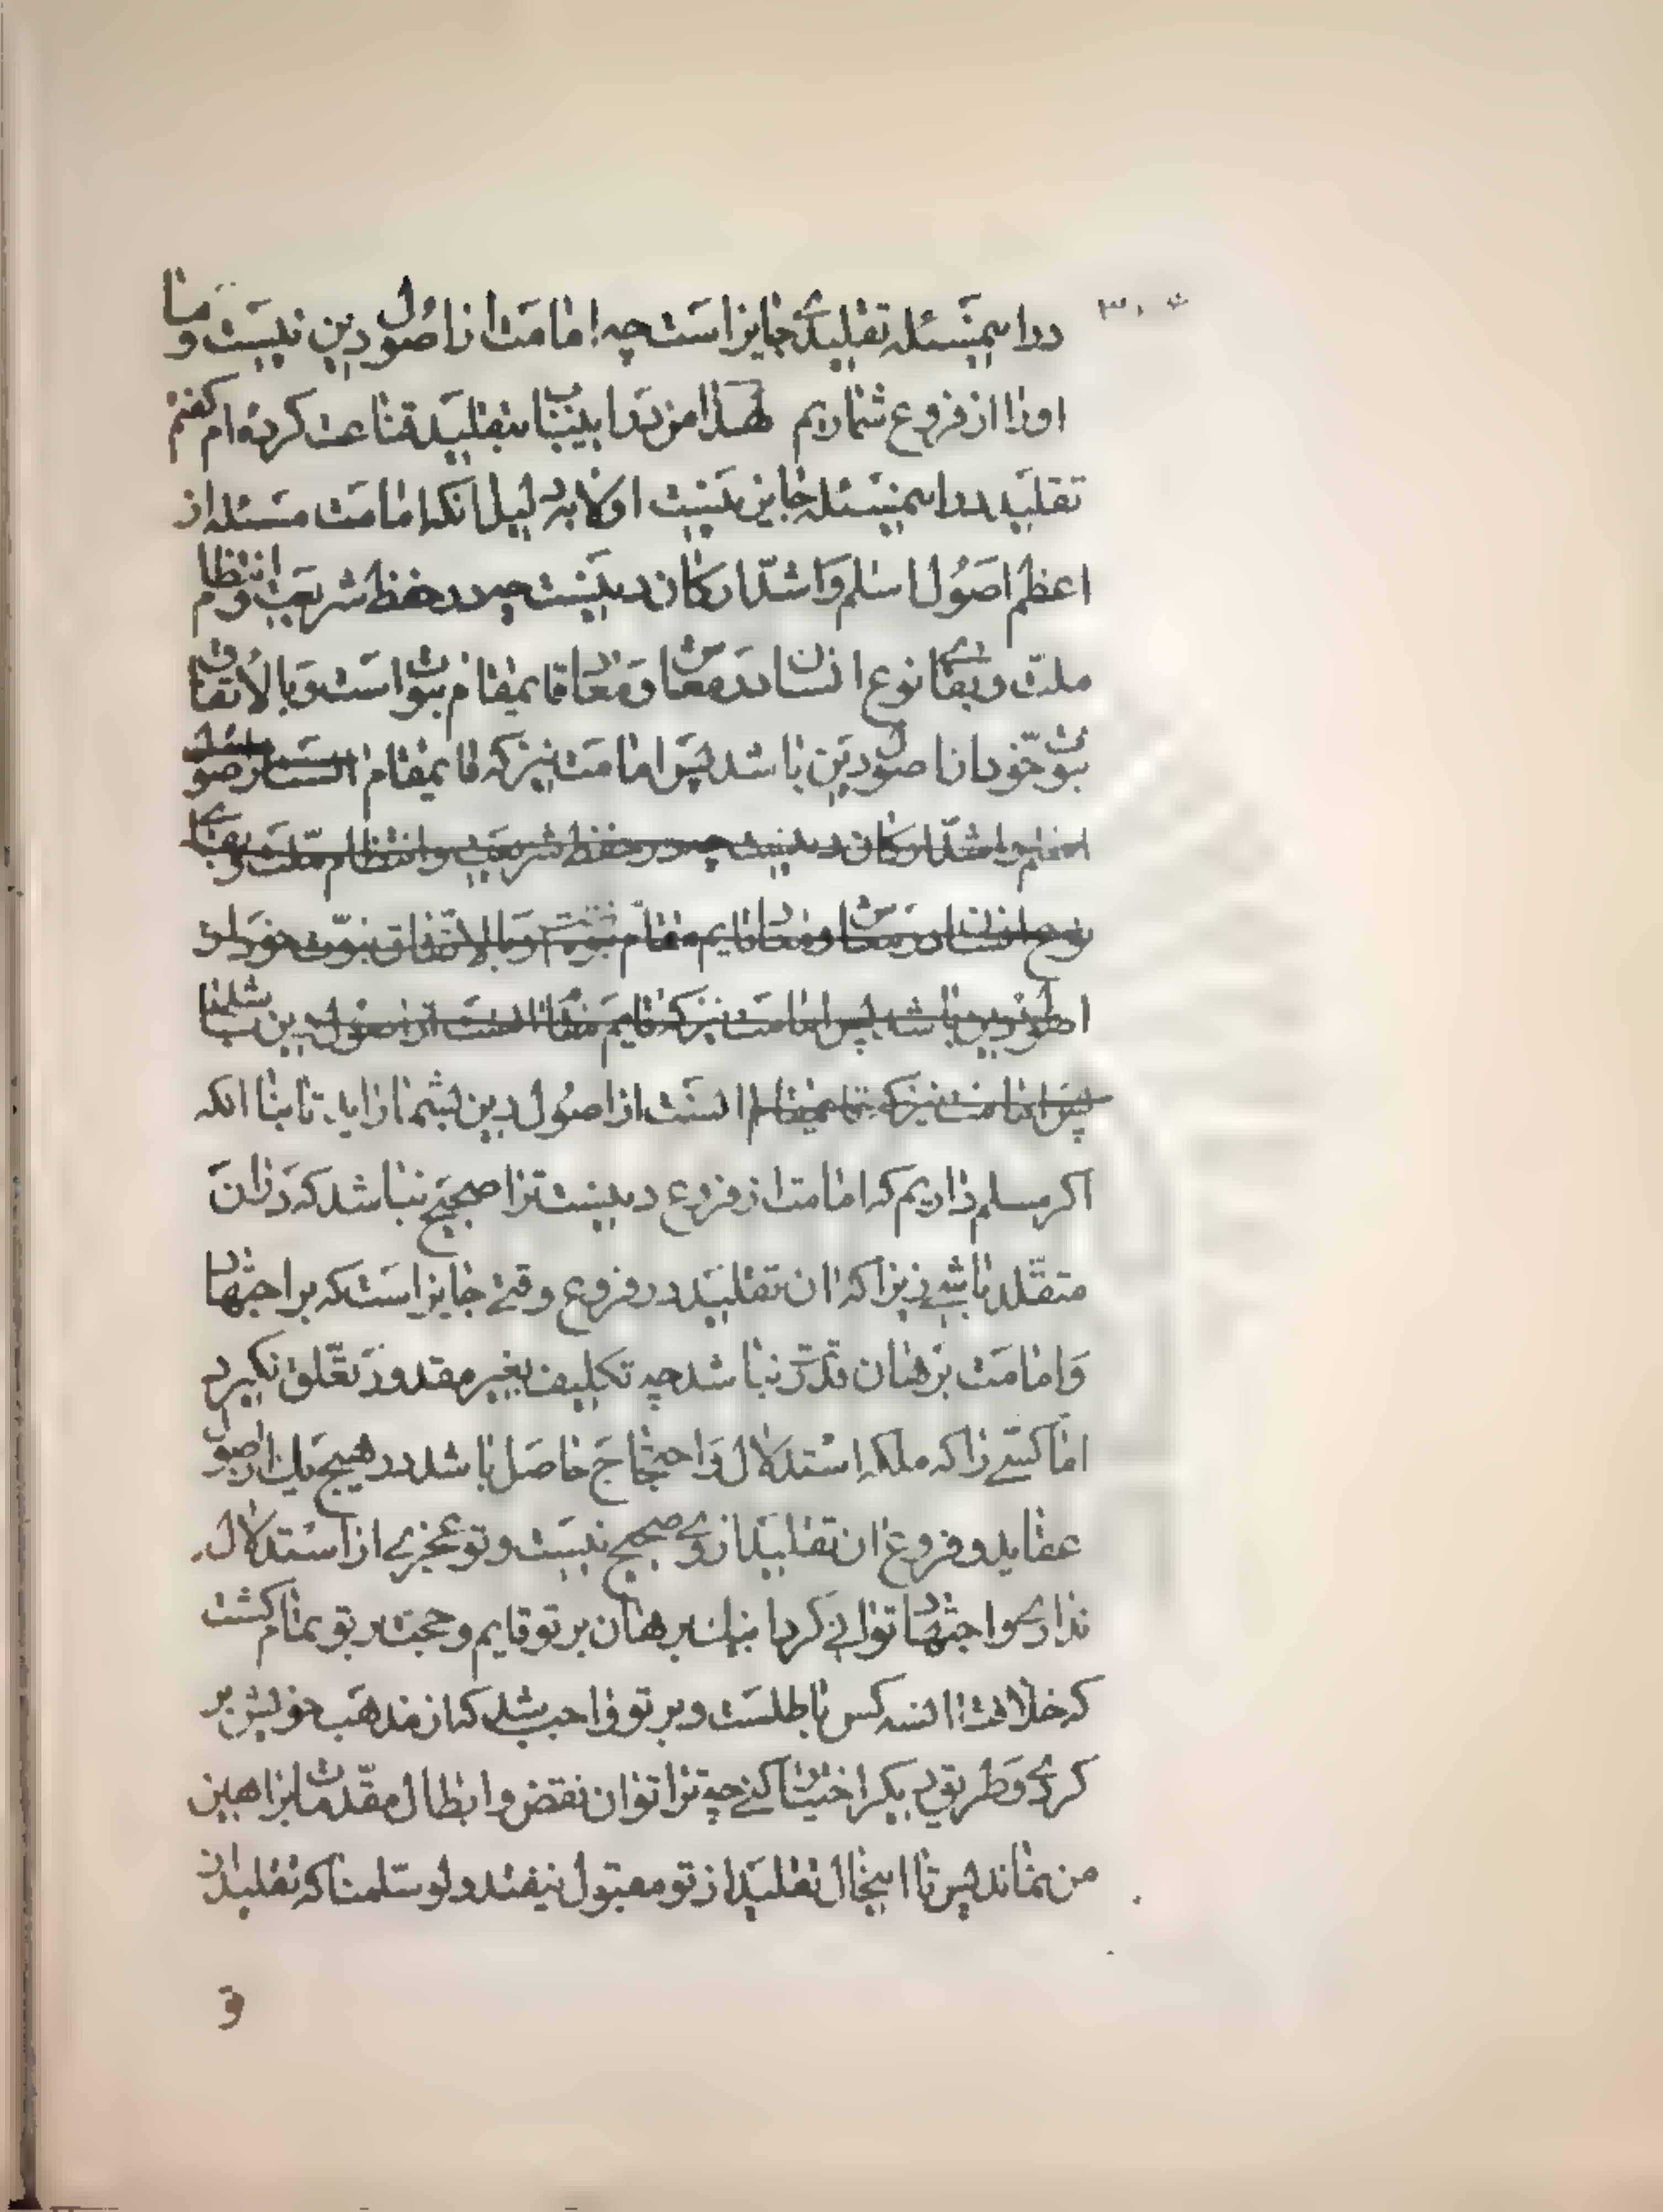 در اینمسئله تقلیدی جایز است چه امامت از اصول دین نیست و ما
او را از فروع شماریم لهذا من در این باب بتقلید قناعت کرده‌ام گفتم
تقلید در اینمسئله جایز نیست اولا به دلیل انکه امامت مسئله از
اعظم اصول اسلم و اشد ارکان دینست چه در حفظ شریعت و انتظام
ملت و بقای نوع انسان در معاش و معاد قایمقام نبوت است و بالاتفاق
نبوت خود از اصول دین باشد پس امامت نیز که قایمقام
اعظم و اشد ارکان دینست چه در حفظ شریعت و انتظام ملت و بقای
نوع انسان در معاش و معاد قایم مقام نبوت و بالاتفاق نبوت خود از
اصول دین باشد پس امامت نیز که قایم مقام انست از اصول دین باشد
پس امامت نیز که قایمقام انست از اصول دین بشمار اید تا بنا انکه
اکر مسلم داریم که امامت از فروع دینست ترا صحیح نباشد که در ان
متقلد باشی زیرا که ان تقلید در فروع وقتی جایز است که بر اجتهاد
و امامت برهان قدرت نباشد چه تکلیف بغیر مقدور تعلق نگیرد
اما کسی را که ملکه استدلال و احتجاج حاصل باشد در هیچ یک از اصول
عقاید و فروع ان تقلید از وی صحیح نیست و تو عجزی از استدلال
نداری و اجتهاد توانی کرد اینک برهان بر تو قایم و حجت بر تو تمام کشت
که خلافت ان سه کس باطلست و بر تو واجب شد که از مذهب خویش بر
کردی و طریق دیکر اختیار کنی چه ترا توان نقض و ابطال مقدمات براهین
من نماند پس تا اینحال تقلید از تو مقبول نیفتد و لو سلمنا که تقلید از